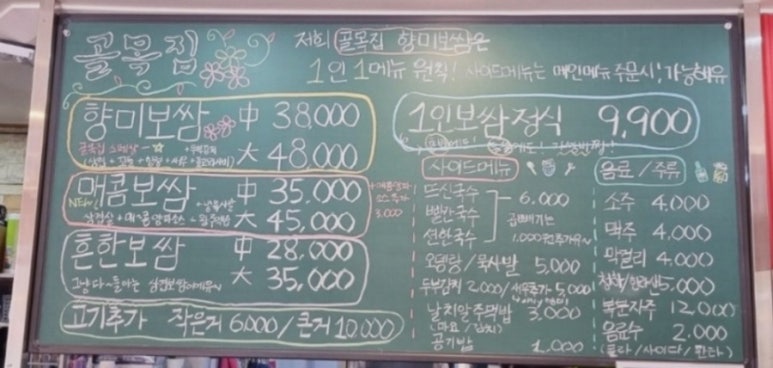 골목집
저희 골목집 향미보쌈은
1인 1메뉴 원칙! 사이드메뉴는 메인메뉴 주문시! 가능해유
향미보쌈 中 38,000
大 48,000
매콤보쌈 中 35,000
大 45,000
+매콤양파
소스추가
3,000
흔한보쌈 中 28,000
大 35,000
고기추가 작은거 6,000 / 큰거 10,000
1인보쌈정식 9,900
사이드메뉴
뜨신국수
빨간국수
션한국수
6,000
곱빼기는
1,000원추가유~
오뎅탕 / 묵사발 5,000
두부김치 2,000 / 새우추가 5,000
날치알주먹밥 3,000
(마요 / 김치)
공기밥 1,000
음료 / 주류
소주 4,000
맥주 4,000
막걸리 4,000
5,000
복분자주 12,000
음료수 2,000
(콜라 / 사이다 / 환타)